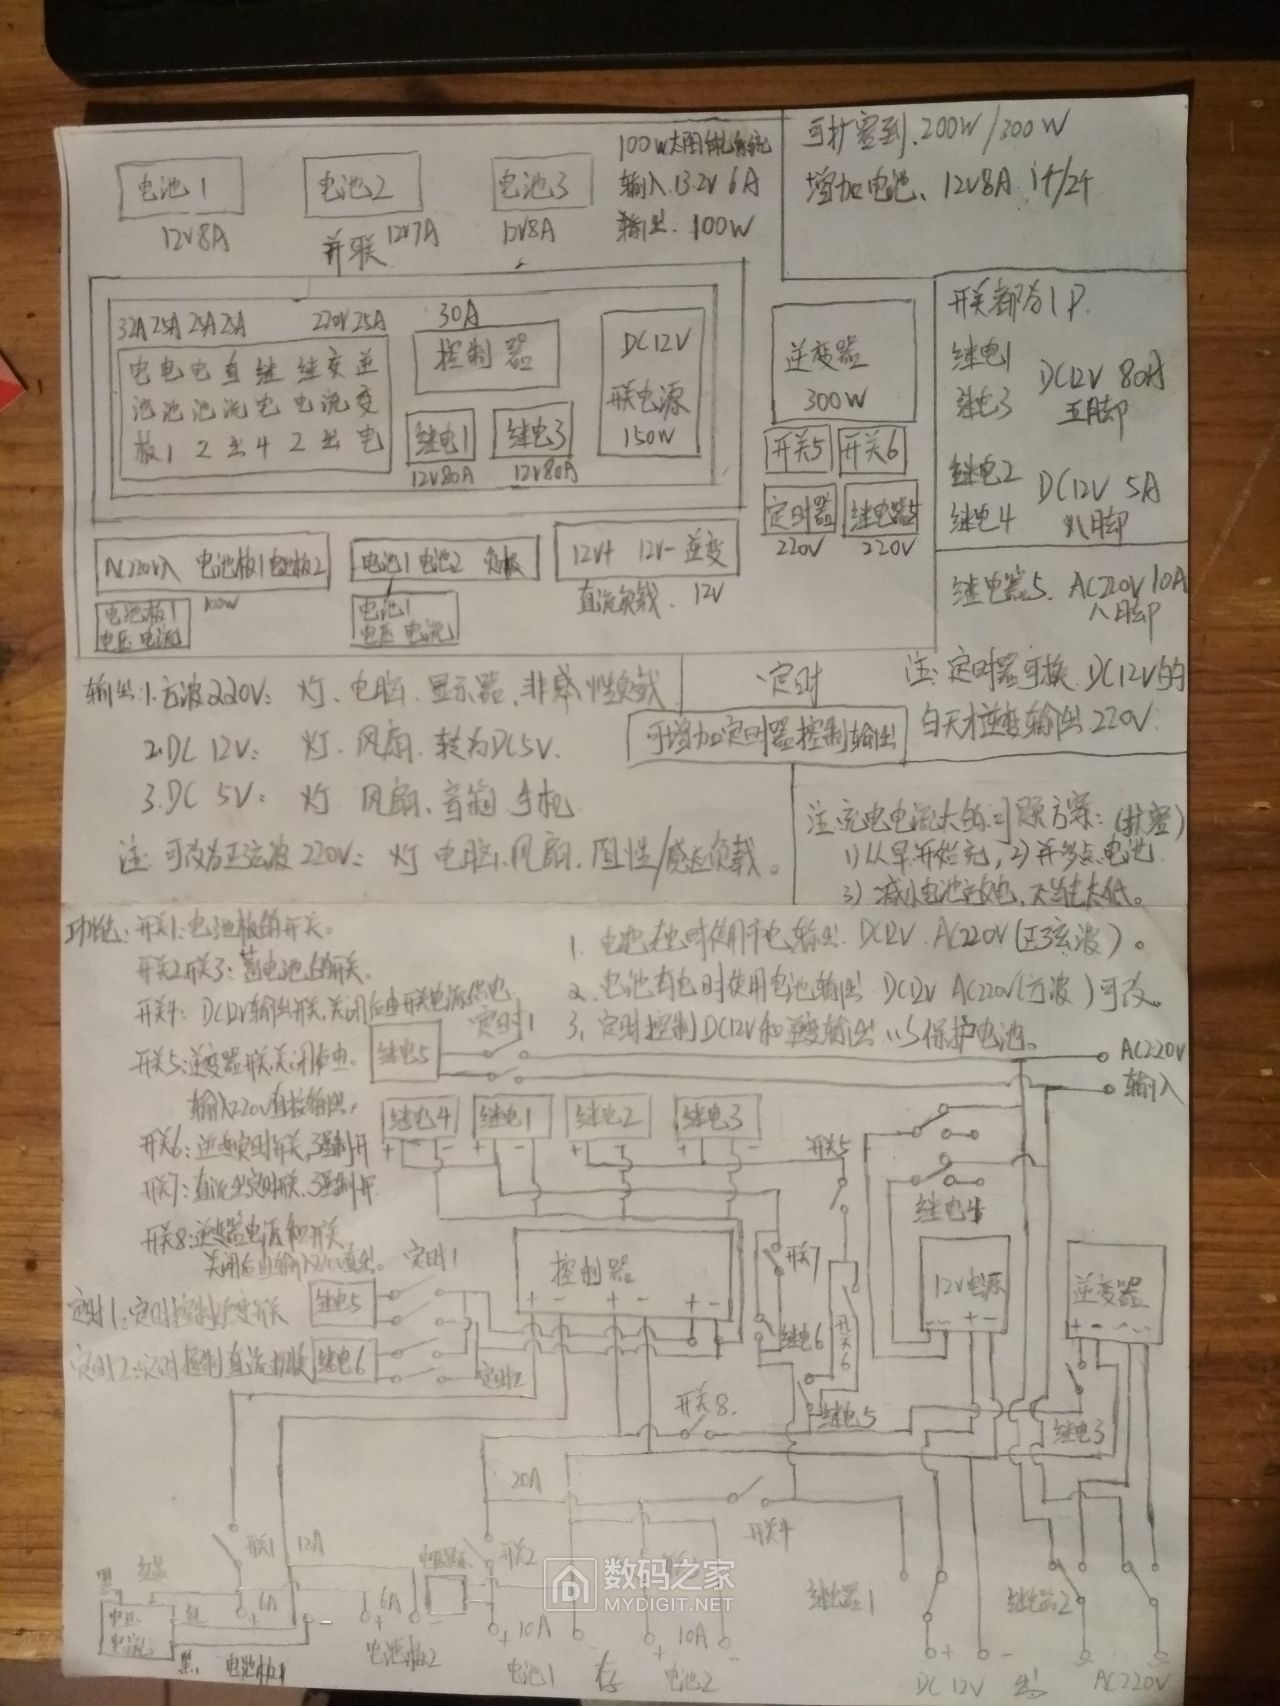 电池1
12V8A
电池2
12V7A
并联
电池3
12V8A
100W太阳能系统
输入.13.2V 6A
输出.100W
可扩容到.200W/300W
增加电池、12V8A.1个/2个
32A 25A 25A 25A 220V 25A
电 电 电 直 继 继 变 逆
池 池 池 流 电 电 流 变
板 1 2 出 4 2 出 电
30A
控制器
继电1
12V80A
继电3
12V80A
DC12V
开关电源
150W
逆变器
300W
开关5
开关6
定时器
220V
继电器5
220V
开关都为1P.
继电1
继电3
DC12V 80A
五脚
继电2
继电4
DC12V 5A
八脚
继电器5. AC220V 10A
八脚
AC220V入 电池板1 电池板2
100W
电池板1
电压 电流
电池1 电池2
电池1
电压 电流
12V+ 12V- 逆变
直流负载. 12V
输出:1.方波220V: 灯、电脑、显示器、非感性负载
2.DC 12V: 灯、风扇、转为DC5V.
3.DC 5V: 灯 风扇、音箱 手机
注:可改为正弦波220V: 灯 电脑、风扇、阻性/感性负载。
定时
可增加定时器控制输出
注:定时器可换DC12V的
白天才逆变输出220V.
注:充电电流大的问题方案:(扩容)
1)从早开始充,2)并多点电池
3)减小电池放电,不能太低。
功能:开关1:电池板的开关。
开关2开关3:蓄电池的开关.
开关4: DC12V输出开关,关闭后由开关电源供电
开关5:逆变器开关,关闭后由
输入220V直接输出.
开关6:逆变定时开关,强制开
开关7:直流出定时开关.强制开
开关8:逆变器电源和开关
关闭后由输入220V直出.
定时1:定时控制逆变开关
定时2:定时控制直流
1.电池无电时使用市电输出DC12V AC220V(正弦波)。
2.电池有电时使用电池输出DC12V AC220V(方波)可改。
3.定时控制DC12V和逆变输出以保护电池。
定时1
继电5
AC220V
输入
继电4
+ -
继电1
+ -
继电2
+ -
继电3
+ -
开关5
继电4
控制器
+ - + - + -
开关7
继电6
开关6
继电5
12V电源
~~ + -
逆变器
+ - ~~
继电3
定时1
继电5
继电6
定时2
开关8.
20A
开关4
开关1
12A
开关2
黑
红
电压
电流
红
黑
6A
+
-
电池板1
6A
+ -
电池板2
+ 10A -
电池1
存
+ 10A -
电池2
继电器1
继电器2
+ -
DC 12V 出 AC220V
数码之家
MYDIGIT.NET